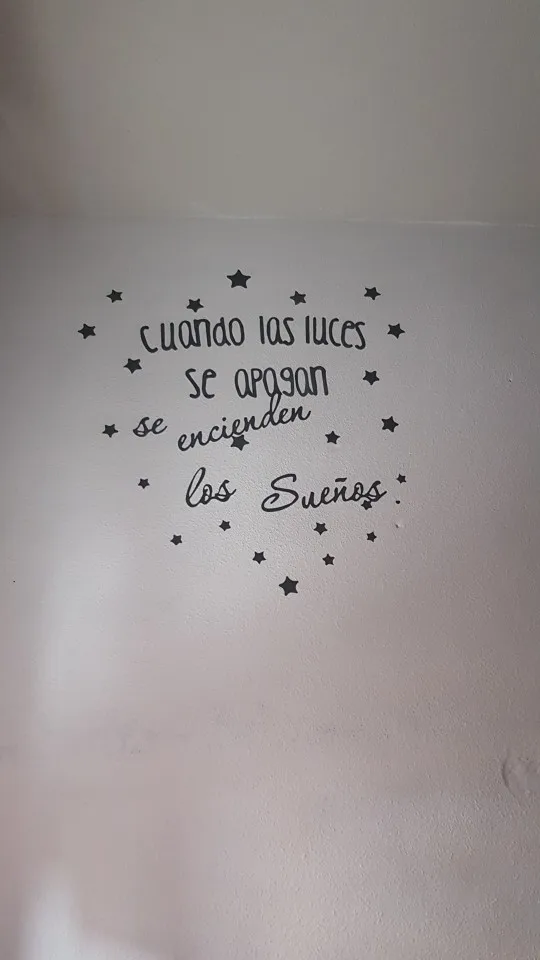 cuando las luces
se apagan
se encienden
los Sueños.